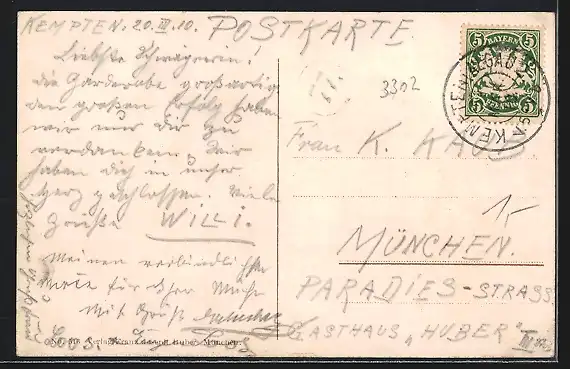 KEMPTEN. 20. III. 10. POSTKARTE.
Liebste Schwägerin!
die Garderobe großartig
den großen Erfolg haben
wir nur dir zu
verdanken. Wir
haben dich in unser
Herz geschlossen. Viele
Grüße WILLI.
Meinen verbindlichsten
für Ihre Mühe
Mit Gruß
BAYERN
5 5
5 PFENNIG 5
KEMPTEN
3302
Frau K. KAUS
MÜNCHEN.
PARADIES-STRASSE
GASTHAUS „HUBER"
Huber, München.